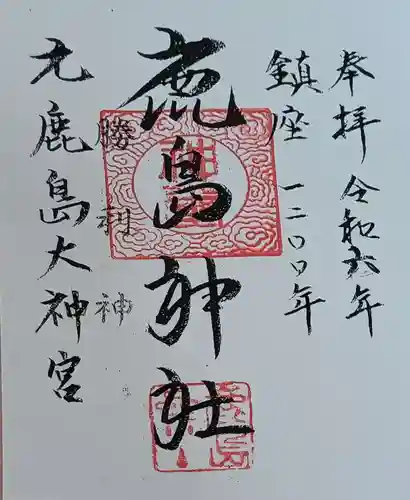 奉拝 令和六年
鎮座 一三〇〇年
鹿島神社
勝利神
元鹿島大神宮